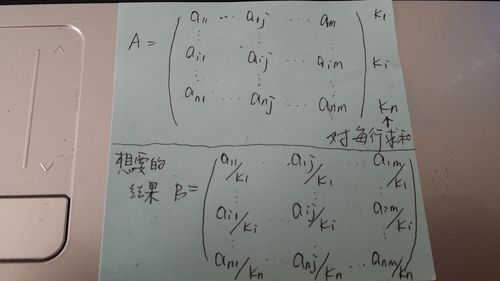 a11 ... a1j ... am k1
⋮ ⋮ ⋮
A = ai1 ... aij ... aim ki
⋮ ⋮ ⋮
an1 ... anj ... anm kn
↑
对每行求和
想要的 a11/k1 ... a1j/k1 ... a1m/k1
结果 B = ai1/ki ... aij/ki ... aim/ki
⋮ ⋮ ⋮
an1/kn ... anj/kn ... anm/kn